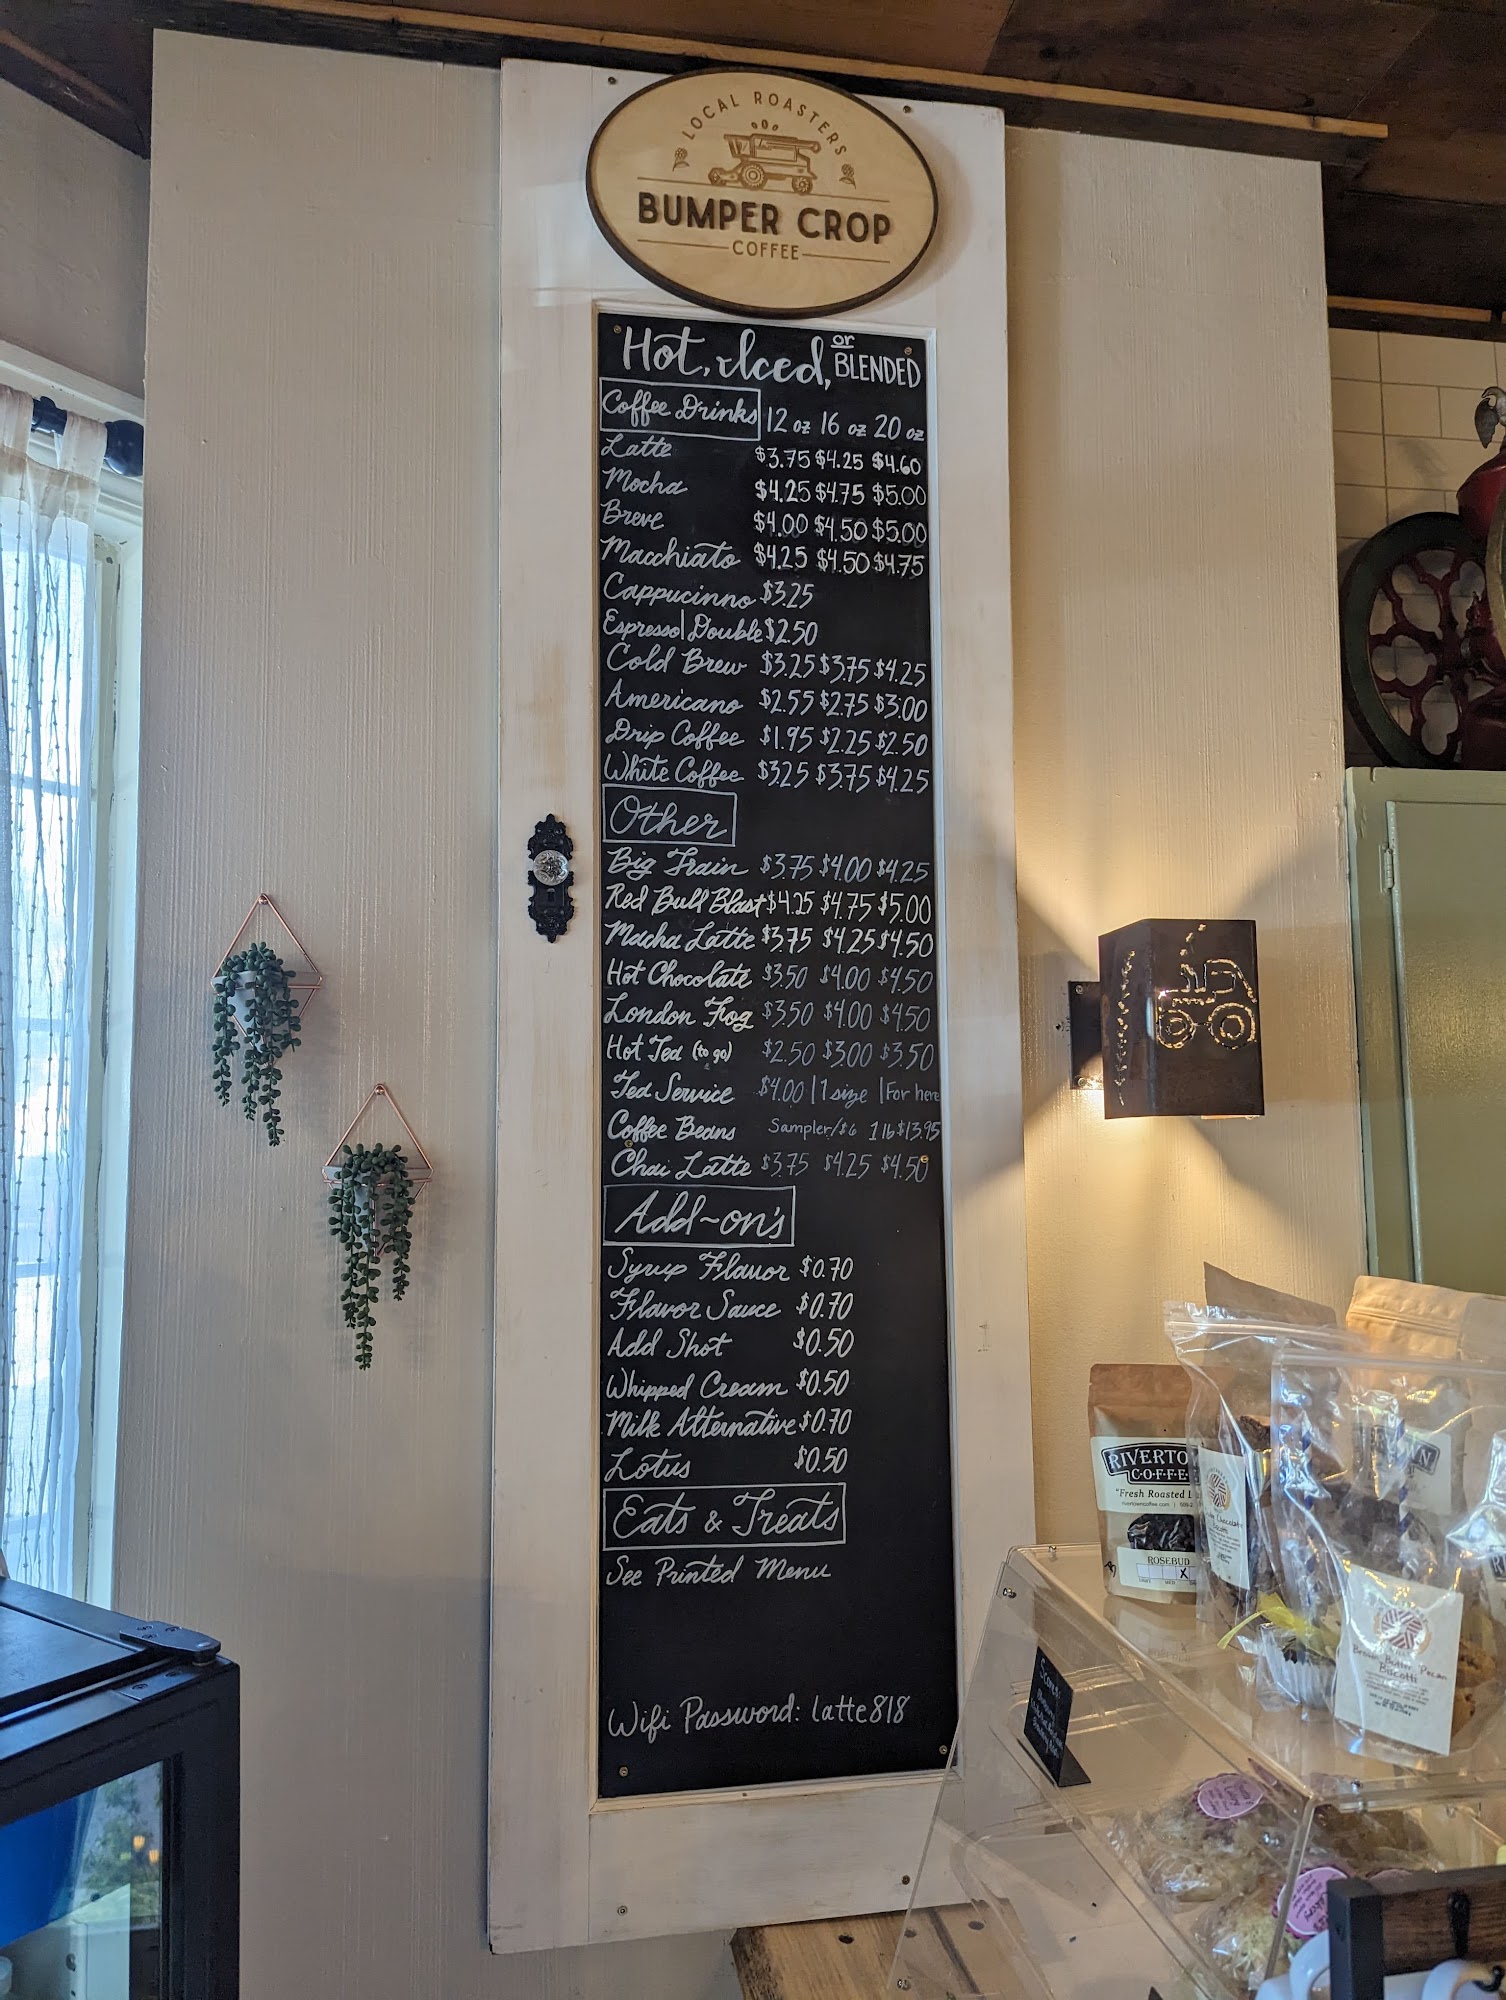 LOCAL ROASTERS
BUMPER CROP
COFFEE
Hot, Iced, or BLENDED
Coffee Drinks 12 oz 16 oz 20 oz
Latte $3.75 $4.25 $4.60
Mocha $4.25 $4.75 $5.00
Breve $4.00 $4.50 $5.00
Macchiato $4.25 $4.50 $4.75
Cappucinno $3.25
Espresso|Double $2.50
Cold Brew $3.25 $3.75 $4.25
Americano $2.55 $2.75 $3.00
Drip Coffee $1.95 $2.25 $2.50
White Coffee $3.25 $3.75 $4.25
Other
Big Train $3.75 $4.00 $4.25
Red Bull Blast $4.25 $4.75 $5.00
Macha Latte $3.75 $4.25 $4.50
Hot Chocolate $3.50 $4.00 $4.50
London Fog $3.50 $4.00 $4.50
Hot Tea (to go) $2.50 $3.00 $3.50
Tea Service $4.00 | 1 size | For here
Coffee Beans Sampler/$6 1 lb $13.95
Chai Latte $3.75 $4.25 $4.50
Add-on's
Syrup Flavor $0.70
Flavor Sauce $0.70
Add Shot $0.50
Whipped Cream $0.50
Milk Alternative $0.70
Lotus $0.50
Eats & Treats
See Printed Menu
Wifi Password: latte818
RIVERTO
COFFE
"Fresh Roasted
ROSEBUD
X
Chocolate
Biscotti
Butter Pecan
Biscotti